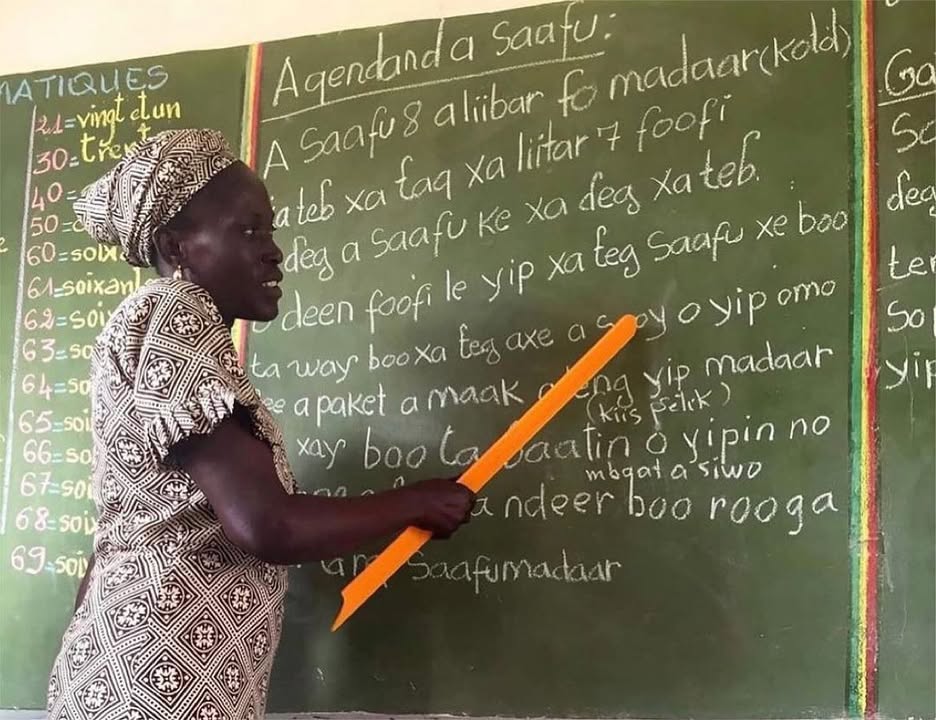 MATIQUES
21=vingt et un
30=
40=
50=
60=soixa
61=soixant
62=soi
63=so
64=soi
65=soi
66=so
67=soi
68=soix
69=soix
Agendand a saafu:
A saafu 8 a liibar fo madaar (kold)
a teb xa taq xa liitar 7 foofi
deg a saafu ke xa deg xa teb.
deen foofi le yip xa teg saafu xe boo
ta way boo xa teg axe a o yip omo
a paket a maak yip madaar
(kiis selik)
xay boo ta o yipin no
mbqat a siwo
ndeer boo rooga
saafu madaar
Ga
So
deg
ter
So
yip